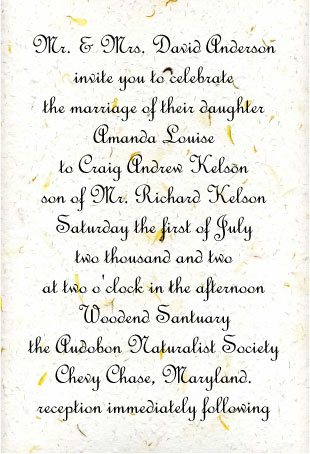 Mr. & Mrs. David Anderson
invite you to celebrate
the marriage of their daughter
Amanda Louise
to Craig Andrew Kelson
son of Mr. Richard Kelson
Saturday the first of July
two thousand and two
at two o'clock in the afternoon
Woodend Santuary
the Audobon Naturalist Society
Chevy Chase, Maryland.
reception immediately following